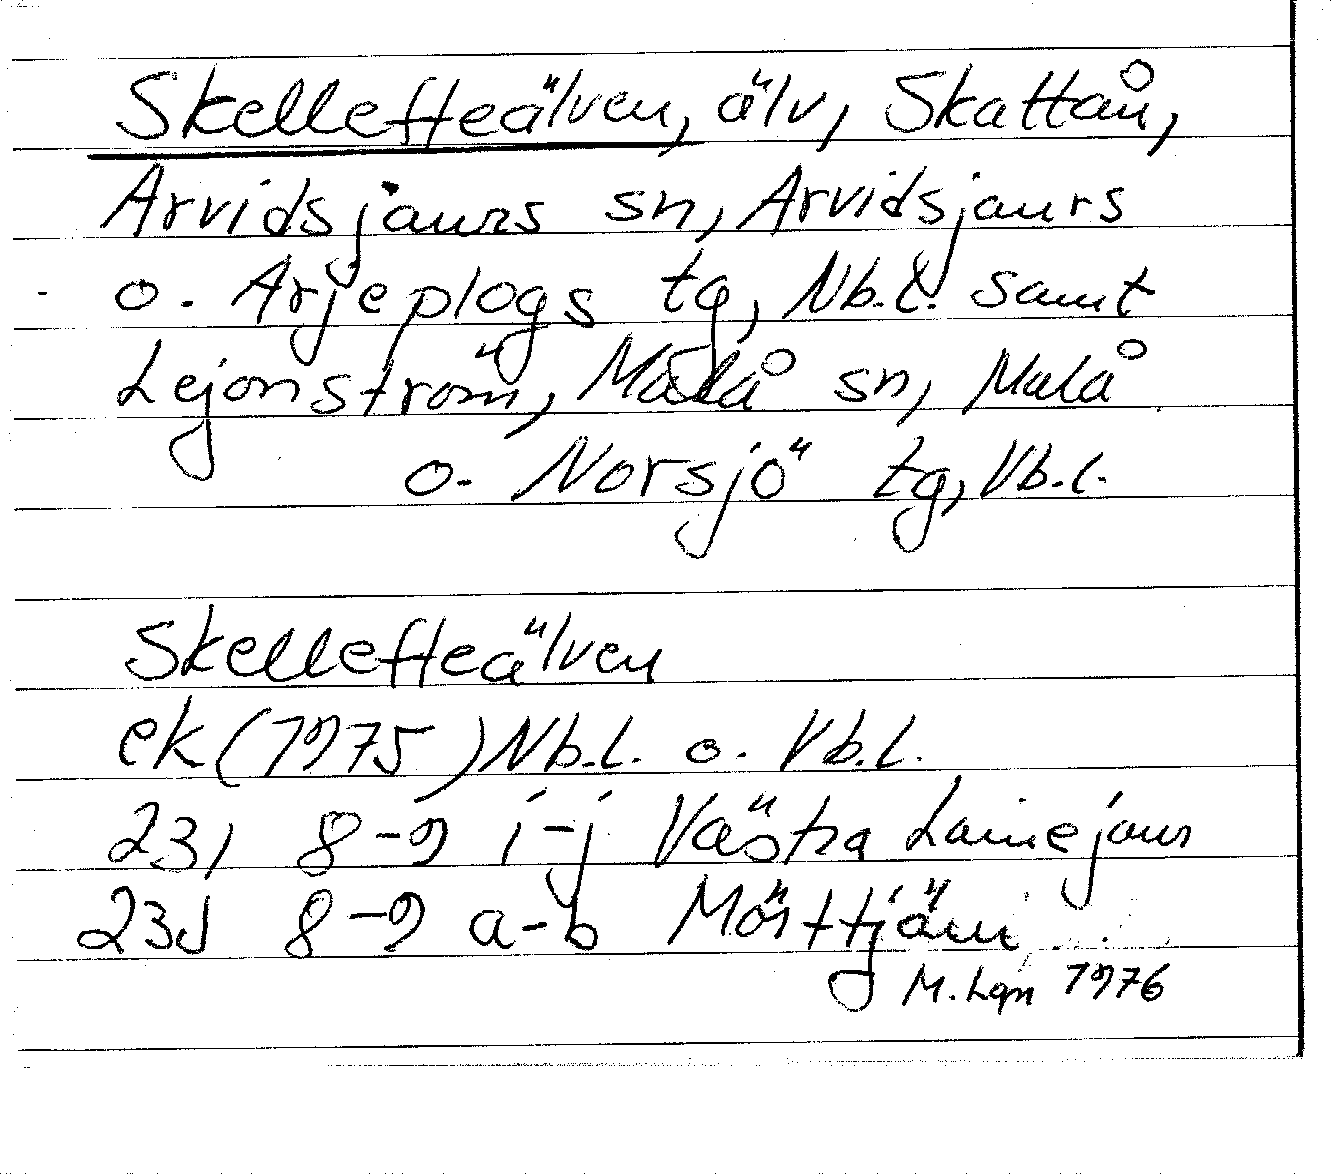 Skellefteälven, älv, Skattån,
Arvidsjaurs sn, Arvidsjaurs
o. Arjeplogs tg, Nb.l. samt
Lejonström, Malå sn, Malå
o. Norsjö tg, Vb.l.
Skellefteälven
ek (1975) Nb.l. o. Vb.l.
23I 8-9 i-j Västra Lainejaur
23J 8-9 a-b Mörttjärn
M. Lgn 1976